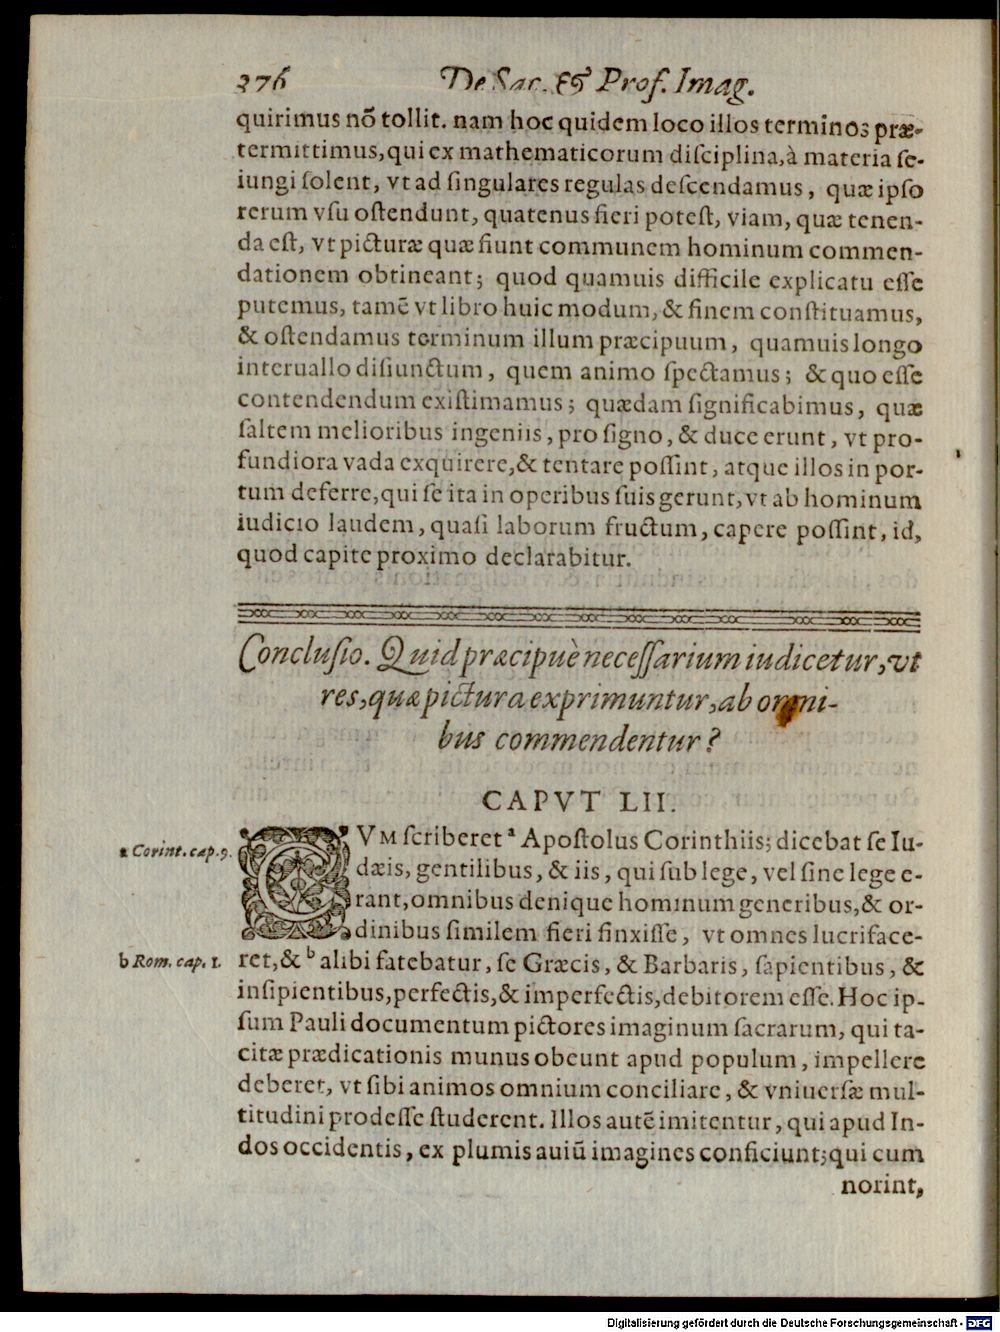 376 De Sac. & Prof. Imag.
quirimus nõ tollit. nam hoc quidem loco illos terminos præ-
termittimus, qui ex mathematicorum diſciplina, à materia ſe-
iungi ſolent, vt ad ſingulares regulas deſcendamus, quæ ipſo
rerum vſu oſtendunt, quatenus fieri poteſt, viam, quæ tenen-
da eſt, vt picturæ quæ fiunt communem hominum commen-
dationem obtineant; quod quamuis difficile explicatu eſſe
putemus, tamẽ vt libro huic modum, & finem conſtituamus,
& oſtendamus terminum illum præcipuum, quamuis longo
interuallo diſiunctum, quem animo ſpectamus; & quo eſſe
contendendum exiſtimamus; quædam ſignificabimus, quæ
ſaltem melioribus ingeniis, pro ſigno, & duce erunt, vt pro-
fundiora vada exquirere, & tentare poſſint, atque illos in por-
tum deferre, qui ſe ita in operibus ſuis gerunt, vt ab hominum
iudicio laudem, quaſi laborum fructum, capere poſſint, id,
quod capite proximo declarabitur.
Concluſio. Quid præcipuè neceſſarium iudicetur, vt
res, quæ pictura exprimuntur, ab omni-
bus commendentur?
CAPVT LII.
CVM ſcriberet ᵃ Apoſtolus Corinthiis; dicebat ſe Iu-
a Corint. cap. 9.
dæis, gentilibus, & iis, qui ſub lege, vel ſine lege e-
rant, omnibus denique hominum generibus, & or-
dinibus ſimilem fieri finxiſſe, vt omnes lucriface-
b Rom. cap. 1.
ret, & ᵇ alibi fatebatur, ſe Græcis, & Barbaris, ſapientibus, &
inſipientibus, perfectis, & imperfectis, debitorem eſſe. Hoc ip-
ſum Pauli documentum pictores imaginum ſacrarum, qui ta-
citæ prædicationis munus obeunt apud populum, impellere
deberet, vt ſibi animos omnium conciliare, & vniuerſæ mul-
titudini prodeſſe ſtuderent. Illos autẽ imitentur, qui apud In-
dos occidentis, ex plumis auiũ imagines conficiunt; qui cum
norint,
Digitalisierung gefördert durch die Deutsche Forschungsgemeinschaft - DFG